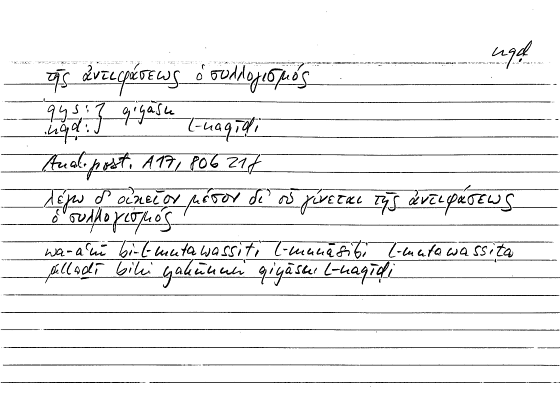 nqḍ
τῆς ἀντιφάσεως ὁ συλλογισμός
qys: } qiyāsu
nqḍ: } l-naqīḍi
And. post. A17, 80b 21f
λέγω δ' οἰκεῖον μέσον δι' οὗ γίνεται τῆς ἀντιφάσεως
ὁ συλλογισμός
wa-aʿnī bi-l-mutawassiṭi l-munāsibi l-mutawassiṭa
allaḏī bihi yakūnu qiyāsu l-naqīḍi